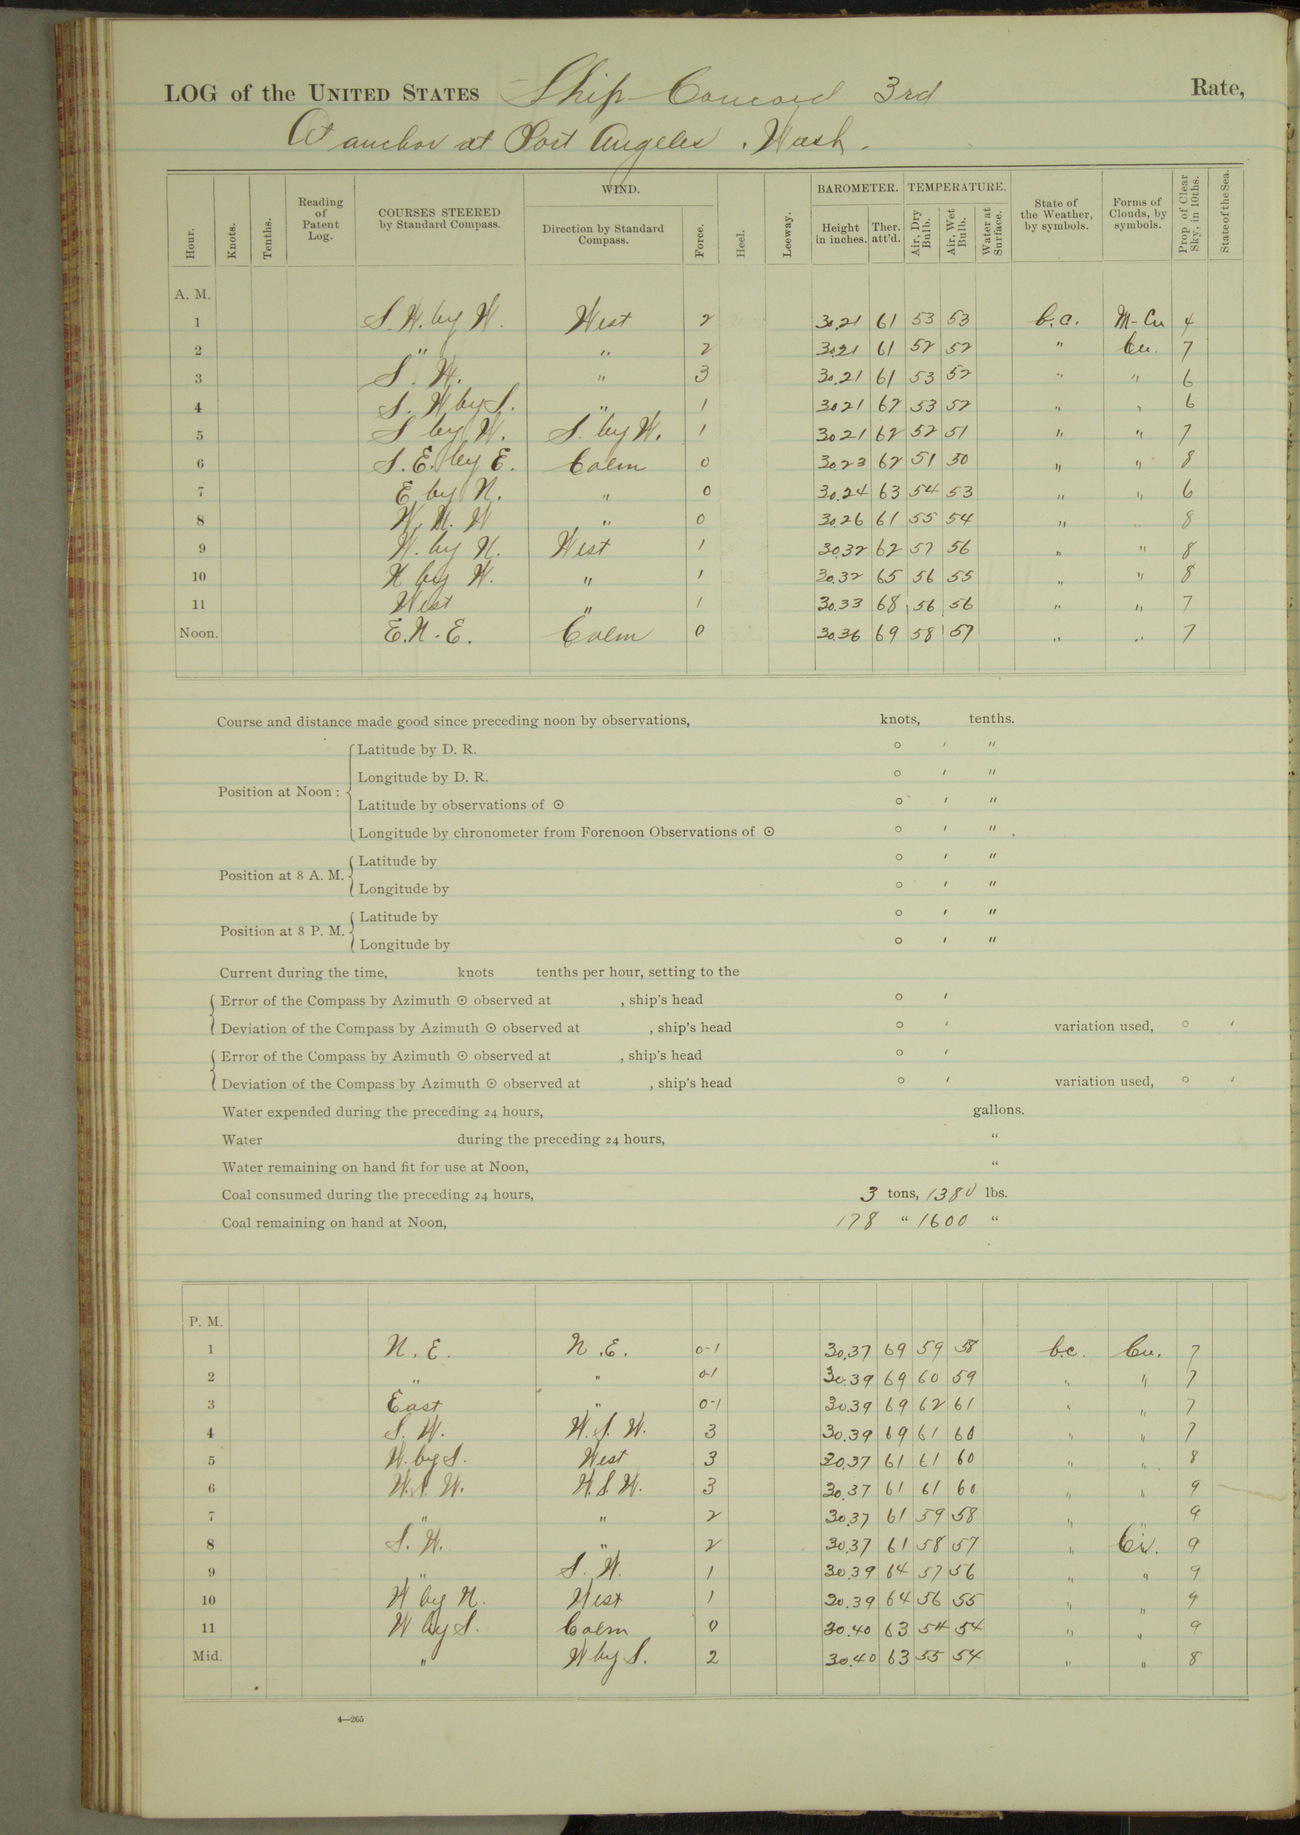 LOG of the UNITED STATES Ship Concord 3rd Rate,
At anchor at Port Angeles, Wash.
Hour. Knots. Tenths. Reading of Patent Log. COURSES STEERED by Standard Compass. WIND. Direction by Standard Compass. Force. Heel. Leeway. BAROMETER. Height in inches. Ther. att'd. TEMPERATURE. Air, Dry Bulb. Air, Wet Bulb. Water at Surface. State of the Weather, by symbols. Forms of Clouds, by symbols. Prop. of Clear Sky, in 10ths. State of the Sea.
A. M.
1 S.W. by W. West 2 30.21 61 53 53 b.c. M-Cu 4
2 " " 2 30.21 61 52 52 " Cu. 7
3 S. W. " 3 30.21 61 53 52 " " 6
4 S. W by S. " 1 30.21 62 53 52 " " 6
5 S by W. S. by W. 1 30.21 62 52 51 " " 7
6 S. E. by E. Calm 0 30.23 62 51 50 " " 8
7 E by N. " 0 30.24 63 54 53 " " 6
8 W. N. W " 0 30.26 61 55 54 " 8
9 W. by N. West 1 30.32 62 57 56 " " 8
10 N by W. " 1 30.32 65 56 55 " " 8
11 West " 1 30.33 68 56 56 " " 7
Noon. E.N.E. Calm 0 30.36 69 58 57 " " 7
Course and distance made good since preceding noon by observations, knots, tenths.
Position at Noon: Latitude by D. R. ° ′ ″
Longitude by D. R. ° ′ ″
Latitude by observations of ☉ ° ′ ″
Longitude by chronometer from Forenoon Observations of ☉ ° ′ ″
Position at 8 A. M. Latitude by ° ′ ″
Longitude by ° ′ ″
Position at 8 P. M. Latitude by ° ′ ″
Longitude by ° ′ ″
Current during the time, knots tenths per hour, setting to the
Error of the Compass by Azimuth ☉ observed at , ship's head ° ′
Deviation of the Compass by Azimuth ☉ observed at , ship's head ° ′ variation used, ° ′
Error of the Compass by Azimuth ☉ observed at , ship's head ° ′
Deviation of the Compass by Azimuth ☉ observed at , ship's head ° ′ variation used, ° ′
Water expended during the preceding 24 hours, gallons.
Water during the preceding 24 hours, "
Water remaining on hand fit for use at Noon, "
Coal consumed during the preceding 24 hours, 3 tons, 1380 lbs.
Coal remaining on hand at Noon, 178 " 1600 "
P. M.
1 N. E. N. E. 0-1 30.37 69 59 58 b.c. Cu. 7
2 " " 0-1 30.39 69 60 59 " " 7
3 East " 0-1 30.39 69 62 61 " " 7
4 S. W. W. S. W. 3 30.39 69 61 60 " " 7
5 W. by S. West 3 30.37 61 61 60 " " 8
6 W.S.W. W.S.W. 3 30.37 61 61 60 " " 9
7 " " 2 30.37 61 59 58 " " 9
8 S. W. " 2 30.37 61 58 57 " Ci. 9
9 " S. W. 1 30.39 64 57 56 " " 9
10 W by N. West 1 30.39 64 56 55 " " 9
11 W by S. Calm 0 30.40 63 54 54 " " 9
Mid. " W by S. 2 30.40 63 55 54 " " 8
4—265